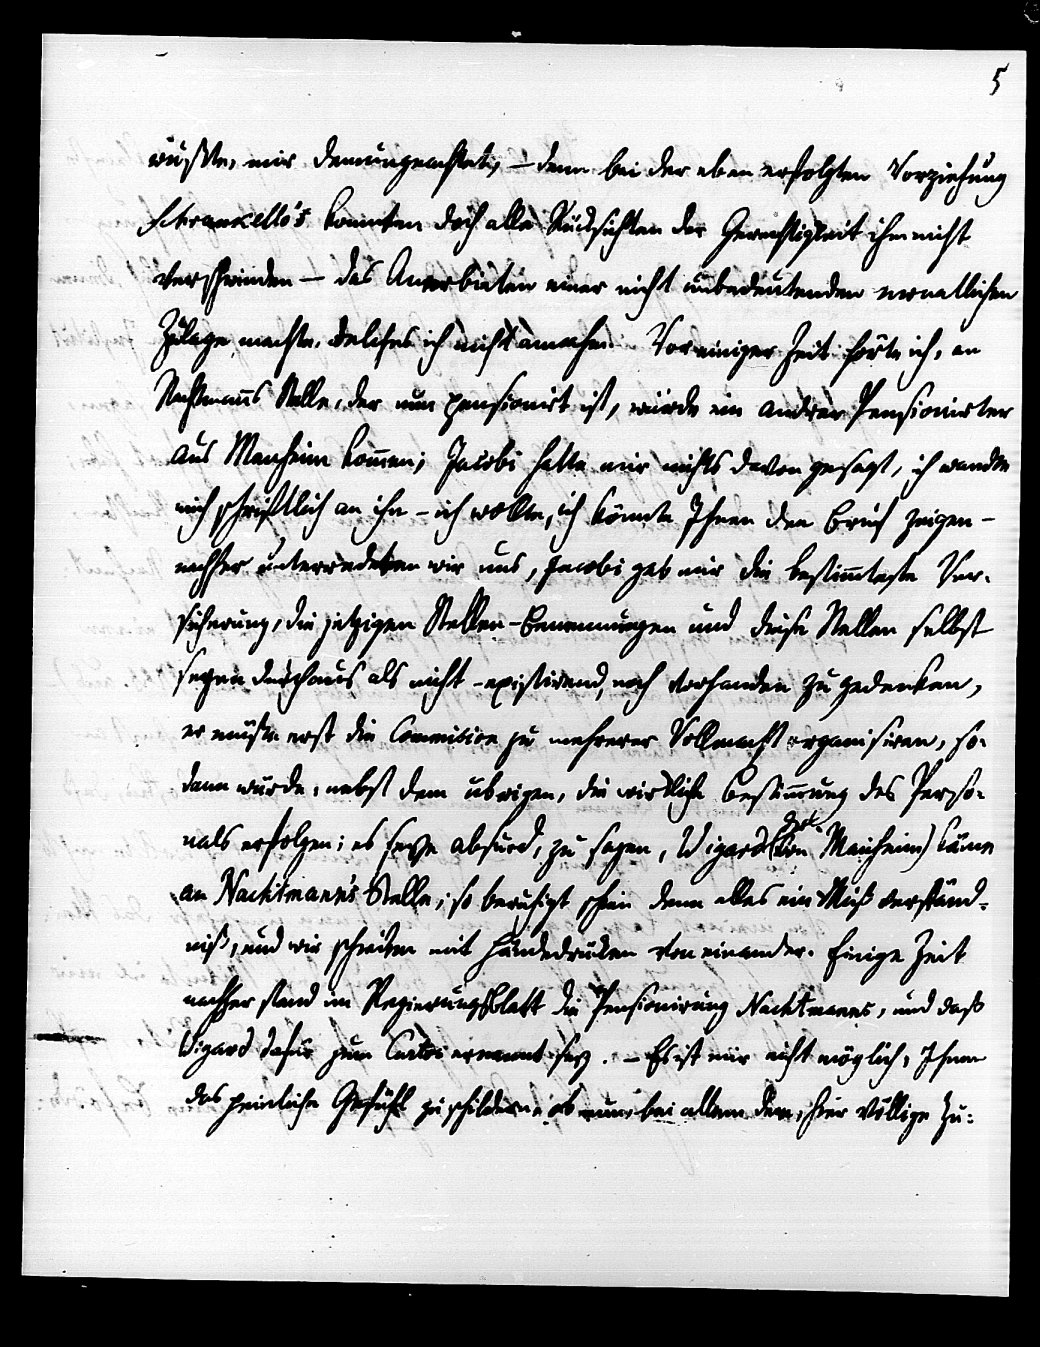 5
wußte, mir demungeachtet, – denn bei der eben erfolgten Vorziehung
konnten doch alle Rücksichten der Gerechtigkeit ihm nicht
verschwinden – das Anerbieten einer nicht unbedeutenden monatlichen
Zulage machte, welches ich nicht annahm. Vor einiger Zeit hörte ich, an
Stelle, der nun pensionirt ist, würde ein andrer Pensionirter
aus Manheim kom̄en; Jacobi hatte mir nichts davon gesagt, ich wandte
mich schriftlich an ihn – ich wollte, ich könnte Ihnen den Brief zeigen –
nachher unterredeten wir uns, Jacobi gab mir die bestim̄teste Ver-
sicherung, die jetzigen Stellen-Benennungen und diese Stellen selbst
seyen durchaus als nicht-existirend, noch vorhanden zu gedenken,
er müßte erst die Commission zu mehrerer Vollmacht organisiren, so-
dann würde, nebst dem übrigen, die wirkliche Bestim̄ung des Perso-
nals erfolgen; es seye absurd, zu sagen, Wigard (von Manheim) käme
an Nachtmann's Stelle; so beruhigt schien denn alles ein Mißverständ-
niß, und wir schieden mit Händedrücken von einander. Einige Zeit
nachher stand im Regierungsblatt die Pensionirung Nachtmanns, und daß
Wigard dafür zum Custos ernannt sey. – Es ist mir nicht möglich, Ihnen
das peinliche Gefühl zu schildern, ob nun bei allem dem, hier völlige Zu-